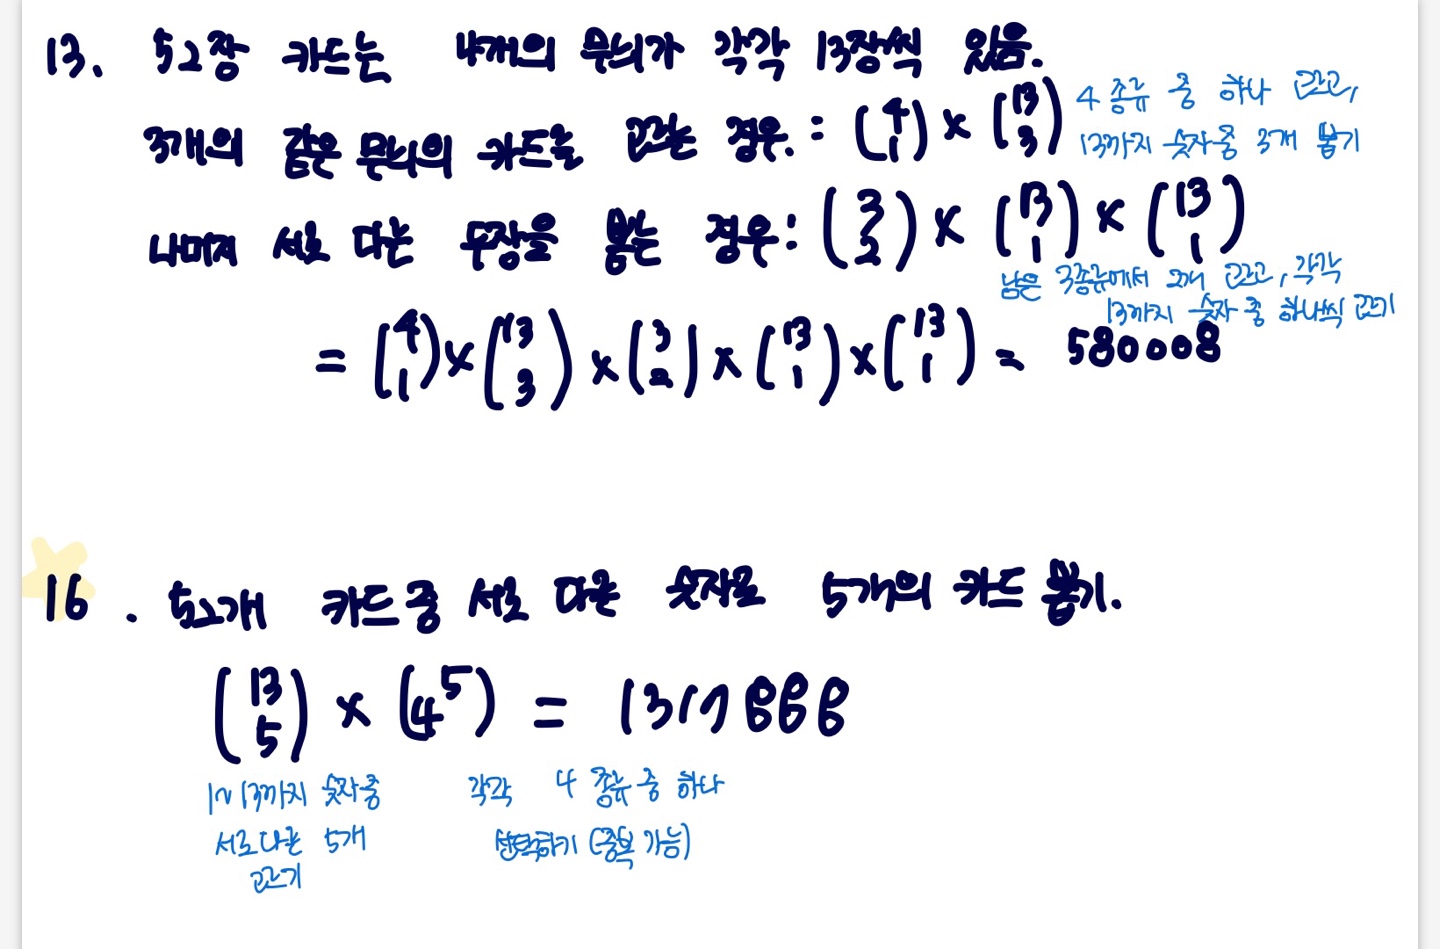 13. 52장 카드는 4개의 무늬가 각각 13장씩 있음.
3개의 같은 무늬의 카드를 고르는 경우. : (4 1) × (13 3)
4 종류 중 하나 고르고,
13까지 숫자 중 3개 뽑기
나머지 서로 다른 두장을 뽑는 경우: (3 2) × (13 1) × (13 1)
남은 3종류에서 2개 고르고, 각각
13까지 숫자 중 하나씩 고르기
= (4 1) × (13 3) × (3 2) × (13 1) × (13 1) = 580008
16. 52개 카드 중 서로 다른 숫자로 5개의 카드 뽑기.
(13 5) × (4⁵) = 1317888
1~13까지 숫자 중
서로 다른 5개
고르기
각각 4 종류 중 하나
선택하기 (중복 가능)